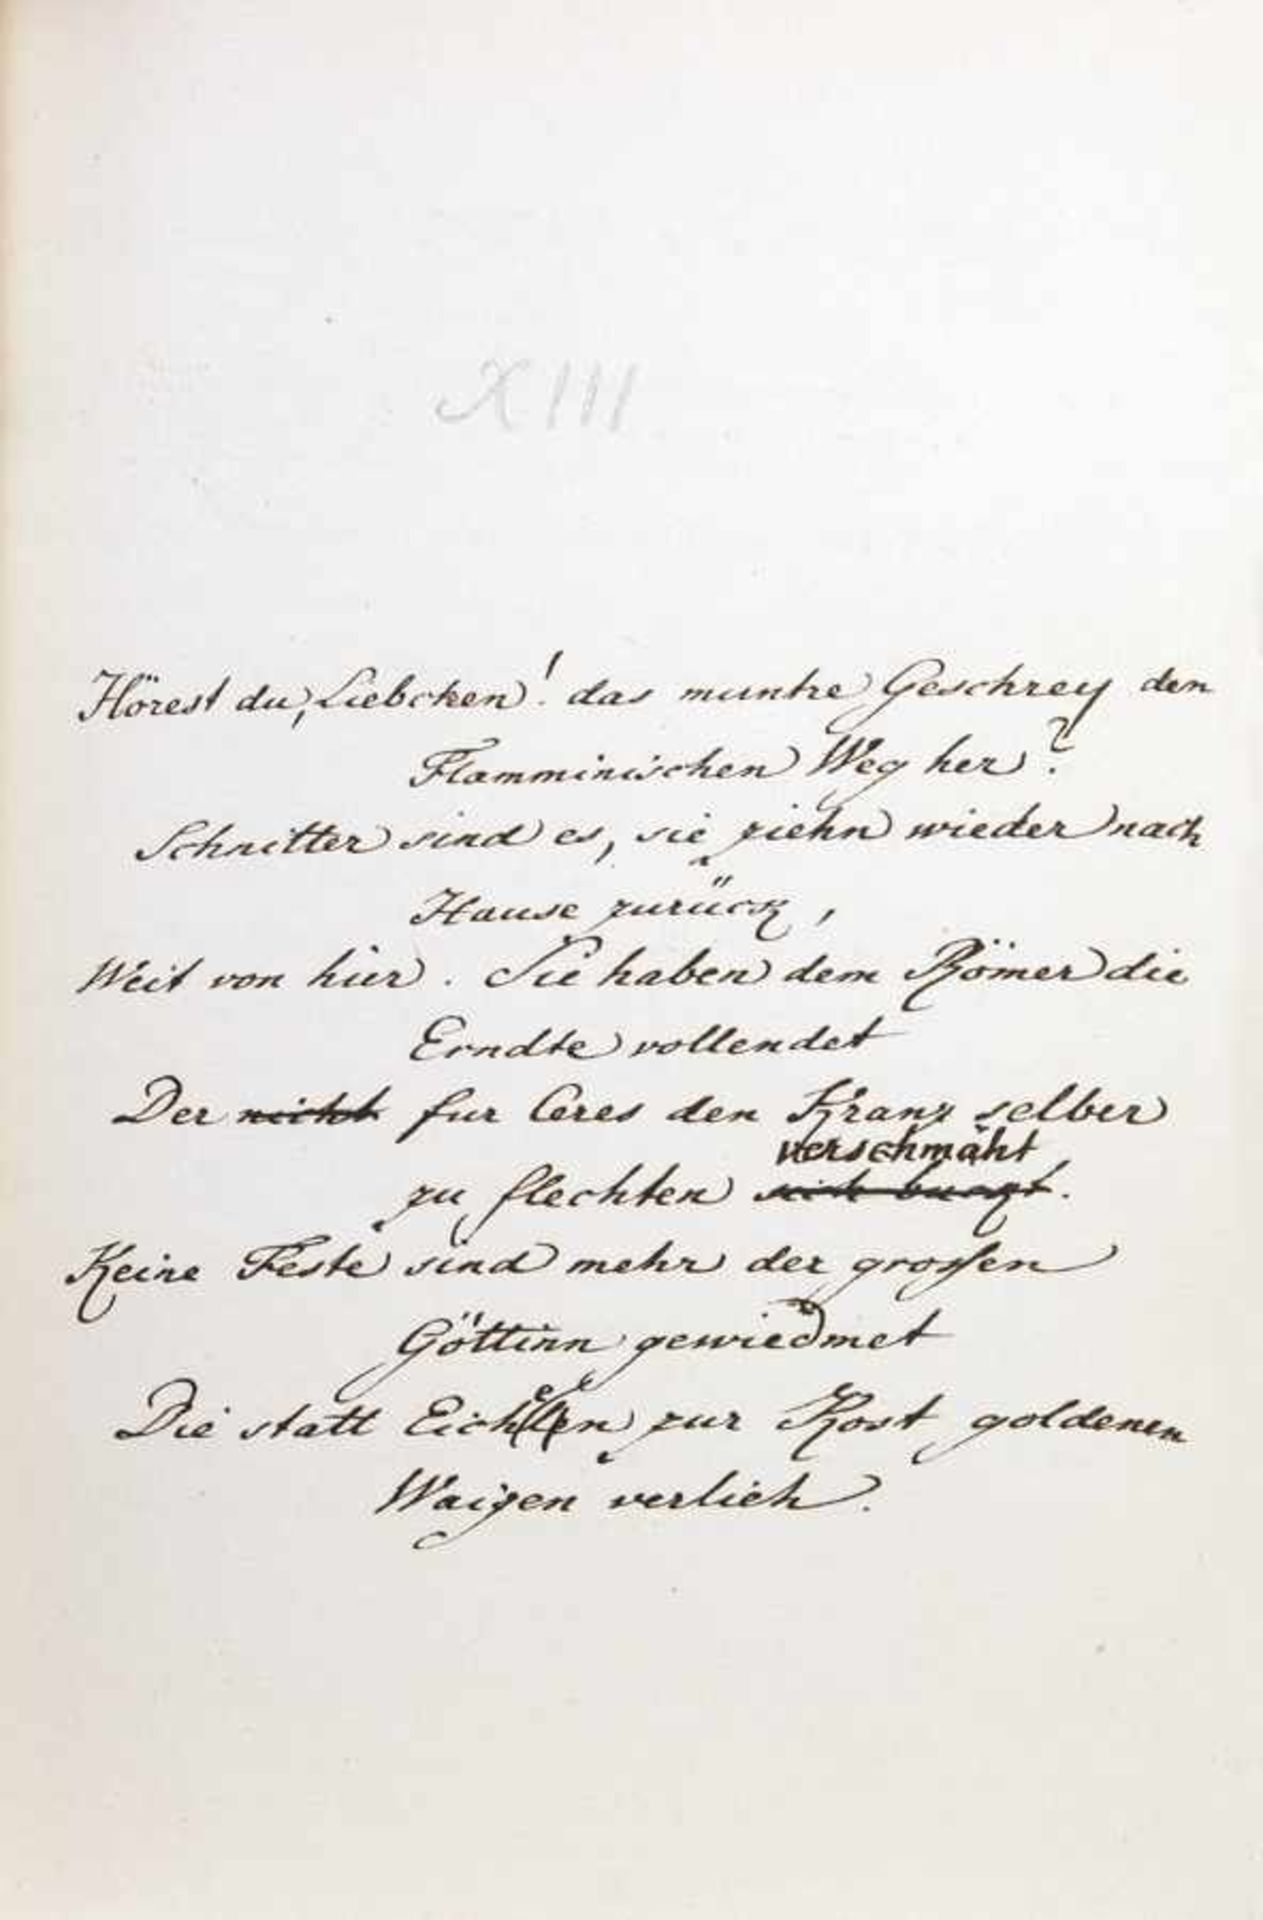 XIII
Hörest du, Liebchen! das muntre Geschrey den
Flamminischen Weg her?
Schnitter sind es, sie ziehn wieder nach
Hause zurück,
Weit von hier. Sie haben dem Römer die
Erndte vollendet
Der nicht fur Ceres den Kranz selber
verschmäht
zu flechten sich bückt.
Keine Feste sind mehr der grossen
Göttinn gewiedmet
Die statt Eicheln zur Kost goldenen
Waizen verlieh.